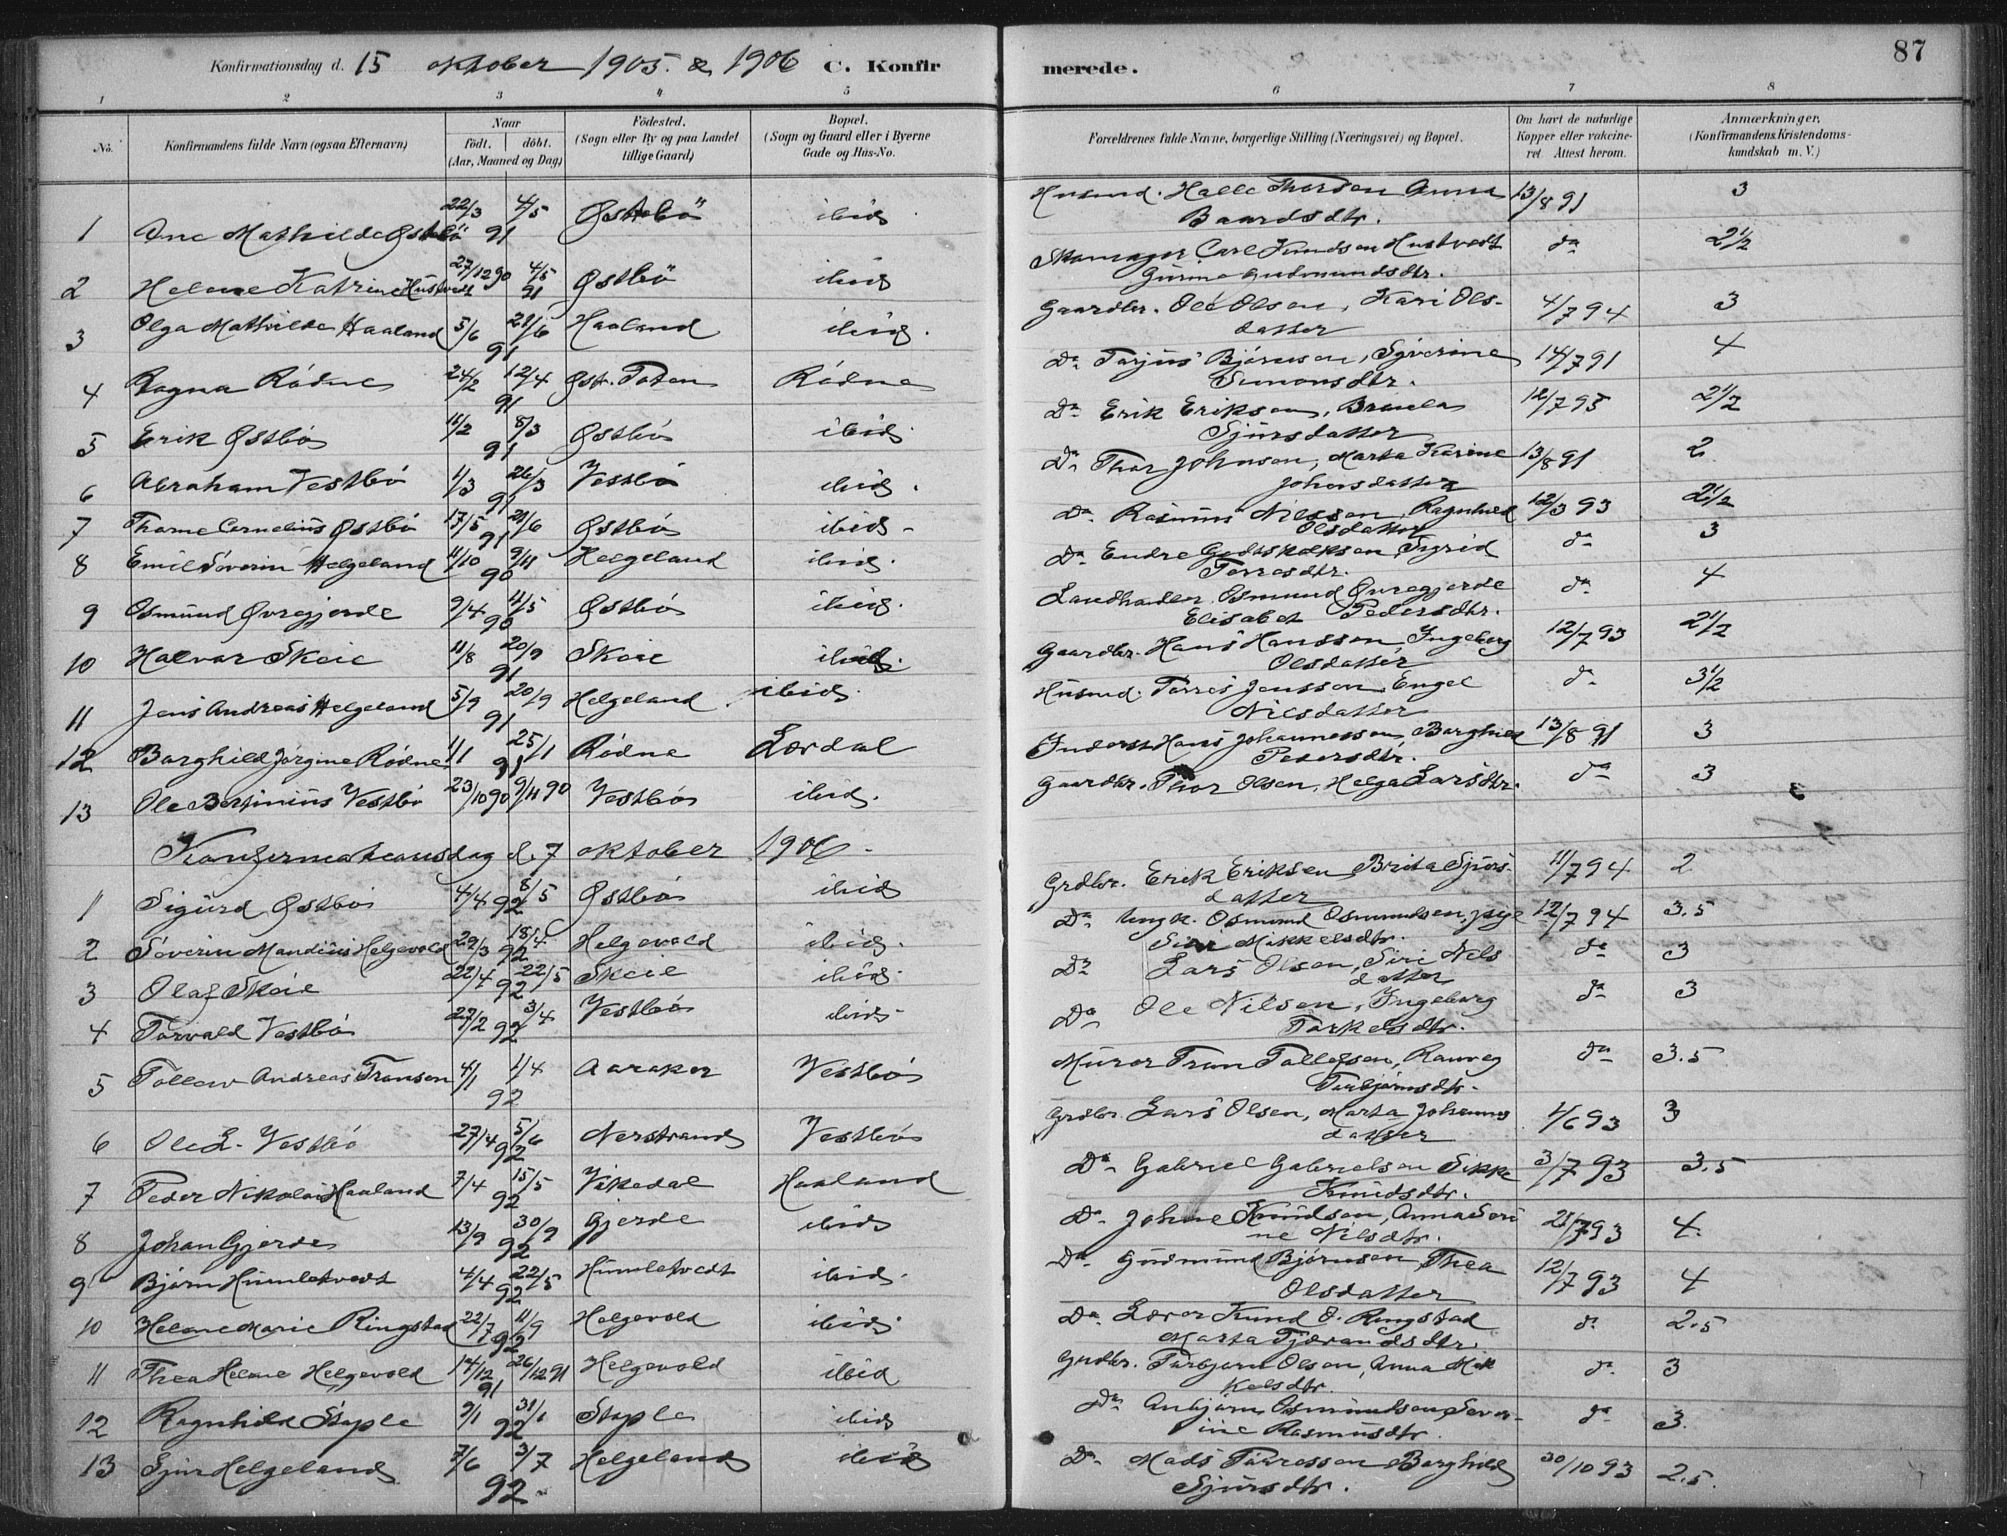 Konfirmationsdag d. 15 oktober 1905. & 1906 C. Konfir merede. 87
1 2 3 4 5 6 7 8
No. Konfirmandens fulde Navn (ogsaa Efternavn) Naar født. døbt. (Aar, Maaned og Dag) Fødested. (Sogn eller By og paa Landet tillige Gaard) Bopæl. (Sogn og Gaard eller i Byerne Gade og Hus-No. Forældrenes fulde Navne, borgerlige Stilling (Næringsvei) og Bopæl. Om havt de naturlige Kopper eller vakcineret Attest herom. Anmærkninger. (Konfirmandens Kristendomskundskab m. V.)
1 Ane Mathilde Østbö 22/3 4/5 91 Østbö ibid. Husmd. Halle Thorsen Anna Baardsdtr. 13/8 91 3
2 Helene Katrine Hustvedt 27/12 90 4/5 91 Østbö ibid Carl Knudsen Hustvedt Gurina Gudmundsdtr. do 2 1/2
3 Olga Mathilde Haaland 5/6 21/6 91 Haaland ibid. Gaardbr. Ole Olsen, Kari Olsdatter 4/7 94 3
4 Ragna Rødne 24/2 12/4 91 Østr. Toten Rødne Do Torjus Bjørnsen, Syverine Simonsdtr. 14/7 91 4
5 Erik Østbø 11/2 8/3 91 Østbø ibid. Do Erik Eriksen, Sjursdatter 12/7 95 2 1/2
6 Abraham Vestbø 1/3 26/3 91 Vestbø ibid. Do Thor Johnsen, Marta Karine Johnsdatter 13/8 91 2
7 Thome Cornelius Østbø 17/5 21/6 91 Østbø ibid - Do Rasmus Nilssen, Ragnhild Olsdatter 12/3 93 2 1/2
8 Emil Søverin Helgeland 11/10 9/11 90 Helgeland ibid. Do Endre Godtskalksen Sigrid Torresdtr. do 3
9 Osmund Øvregjerde 9/4 11/5 90 Østbø ibid. Landhandler Osmund Øvregjerde Elisabet Pedersdtr. do 4
10 Halvar Skeie 11/8 20/9 91 Skeie ibid. Gaardbr. Hans Hanssen, Ingeborg Olsdatter 12/7 93 2 1/2
11 Jens Andreas Helgeland 5/9 20/9 91 Helgeland ibid. Husmd. Torres Jenssen, Engel Nilsdatter do 3 1/2
12 Borghild Jørgine Rødne 1/1 25/1 91 Rødne Lærdal Inderst Hans Johannessen, Borghild Pedersdtr. 13/8 91 3
13 Ole Bertinius Vestbø 23/10 90 9/11 90 Vestbø ibid. Gaardbr. Thor Olsen, Helga Larsdtr. do 3
Konfirmationsdag d. 7 oktober 1906.
1 Sigurd Østbø 4/4 8/5 92 Østbø ibid Grdbr. Erik Eriksen Brita Sjursdatter 11/7 94 2
2 Søverin Mandius Helgevold 29/3 18/4 92 Helgevold ibid. Do Ungk. Osmund Osmundsen, pige Siri Mikkelsdtr. 12/7 94 3.5
3 Olaf Skeie 22/4 22/5 92 Skeie ibid. Do Lars Olsen, Siri Nilsdatter do 3
4 Torvald Vestbø 27/2 3/4 92 Vestbø ibid - Do Ole Nilsen, Ingeborg Torkelsdtr. do 3
5 Tollev Andreas Transen 4/1 1/4 92 Aaraker Vestbø Murer Tran Tollefsen, Ranveg Torbjørnsdtr. do 3.5
6 Ole L. Vestbø 27/4 5/6 92 Nerstrand Vestbø Grdbr. Lars Olsen, Marta Johannesdatter 1/6 93 3
7 Peder Nikolai Haaland 7/4 15/5 92 Vikedal Haaland Do Gabriel Gabrielsen Sikke Knudsdtr. 3/7 93 3.5
8 Johan Gjerde 13/9 30/9 92 Gjerde ibid Do Johne Knudsen, Anna Serine Nilsdtr. 21/7 93 4.
9 Bjørn Humlekvedt 4/4 22/5 92 Humlekvedt ibid. Do Gudmund Bjørnsen, Thea Olsdatter 12/7 93 4
10 Helene Marie Ringstad 22/7 11/9 92 Helgevold ibid. Do Lærer Knud O. Ringstad Marta Tjerandsdtr. do 2.5
11 Thea Helene Helgevold 14/12 91 26/12 91 Helgevold ibid Grdbr. Torbjørn Olsen, Anna Mikkelsdtr. do 3
12 Ragnhild Staple 9/1 31/1 92 Staple ibid Do Anbjørn Osmundsen, Severine Rasmusdtr. do 3.
13 Sjur Helgeland 7/6 3/7 92. Helgeland ibid Do Mads Torressen Borghild Sjursdtr. 30/10 93 2.5.